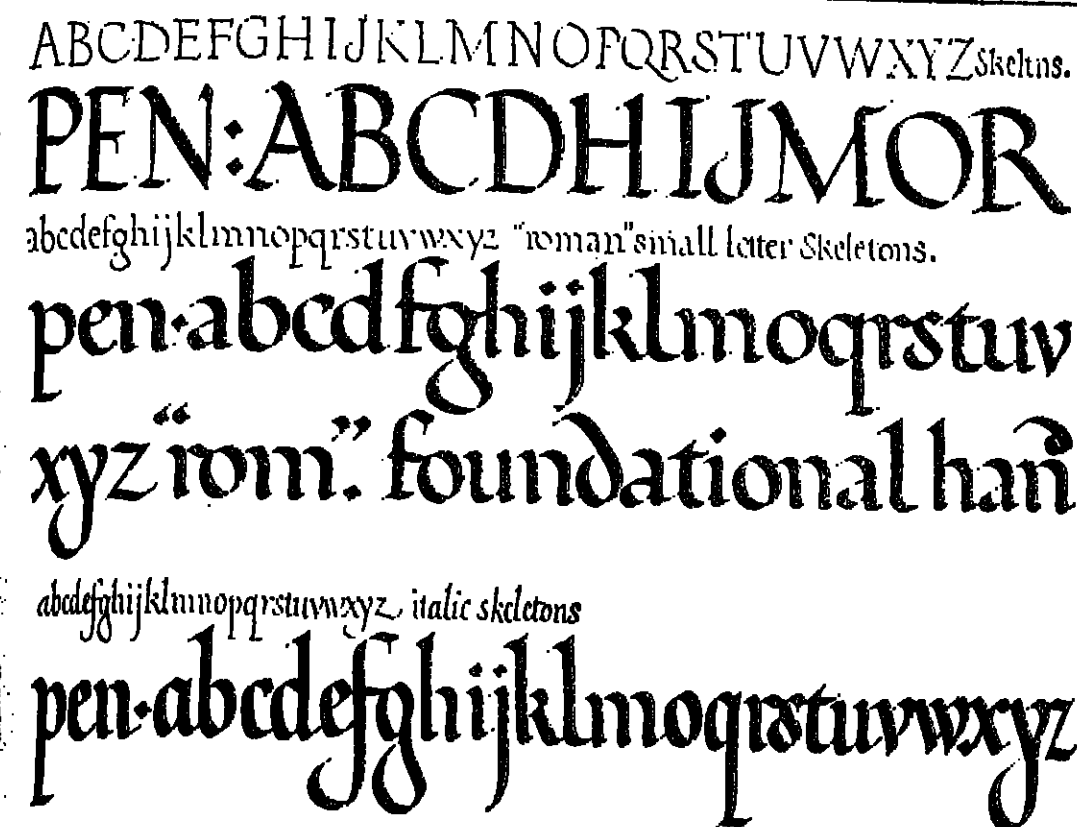 ABCDEFGHIJKLMNOPQRSTUVWXYZ Skeltns.
PEN:ABCDHIJMOR
abcdefghijklmnopqrstuvwxyz "roman" small letter Skeletons.
pen·abcdfghijklmnoqrstuv
xyz "rom". foundational han̄
abcdefghijklmnopqrstuvwxyz, italic skeletons
pen·abcdefghijklmnoqrstuvwxyz